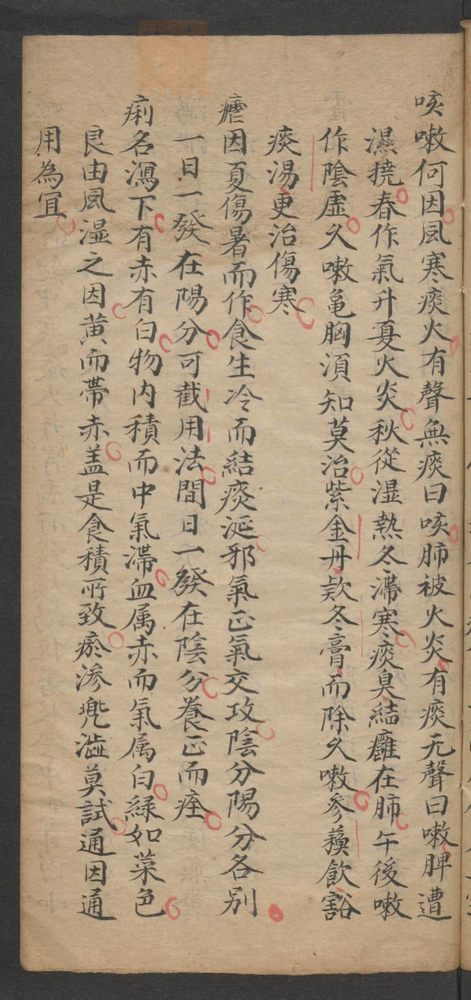 咳嗽何因風寒痰火有聲無痰曰咳肺被火炎有痰无聲曰嗽脾遭
濕撓春作氣升夏火炎秋從湿熱冬滯寒痰臭結癰在肺午後嗽
作陰虛久嗽亀胸須知莫治紫金丹欵冬膏而除久嗽參蘓飲豁
痰湯更治傷寒
瘧因夏傷暑而作食生冷而結痰涎邪氣正氣交攻陰分陽分各别
一日一發在陽分可截用法間日一發在陰分養正而痊
痢名瀉下有赤有白物内積而中氣滯血属赤而氣属白綠如菜色
良由風湿之因黄而帶赤盖是食積所致瘀滲兠澁莫試通因通
用為宜